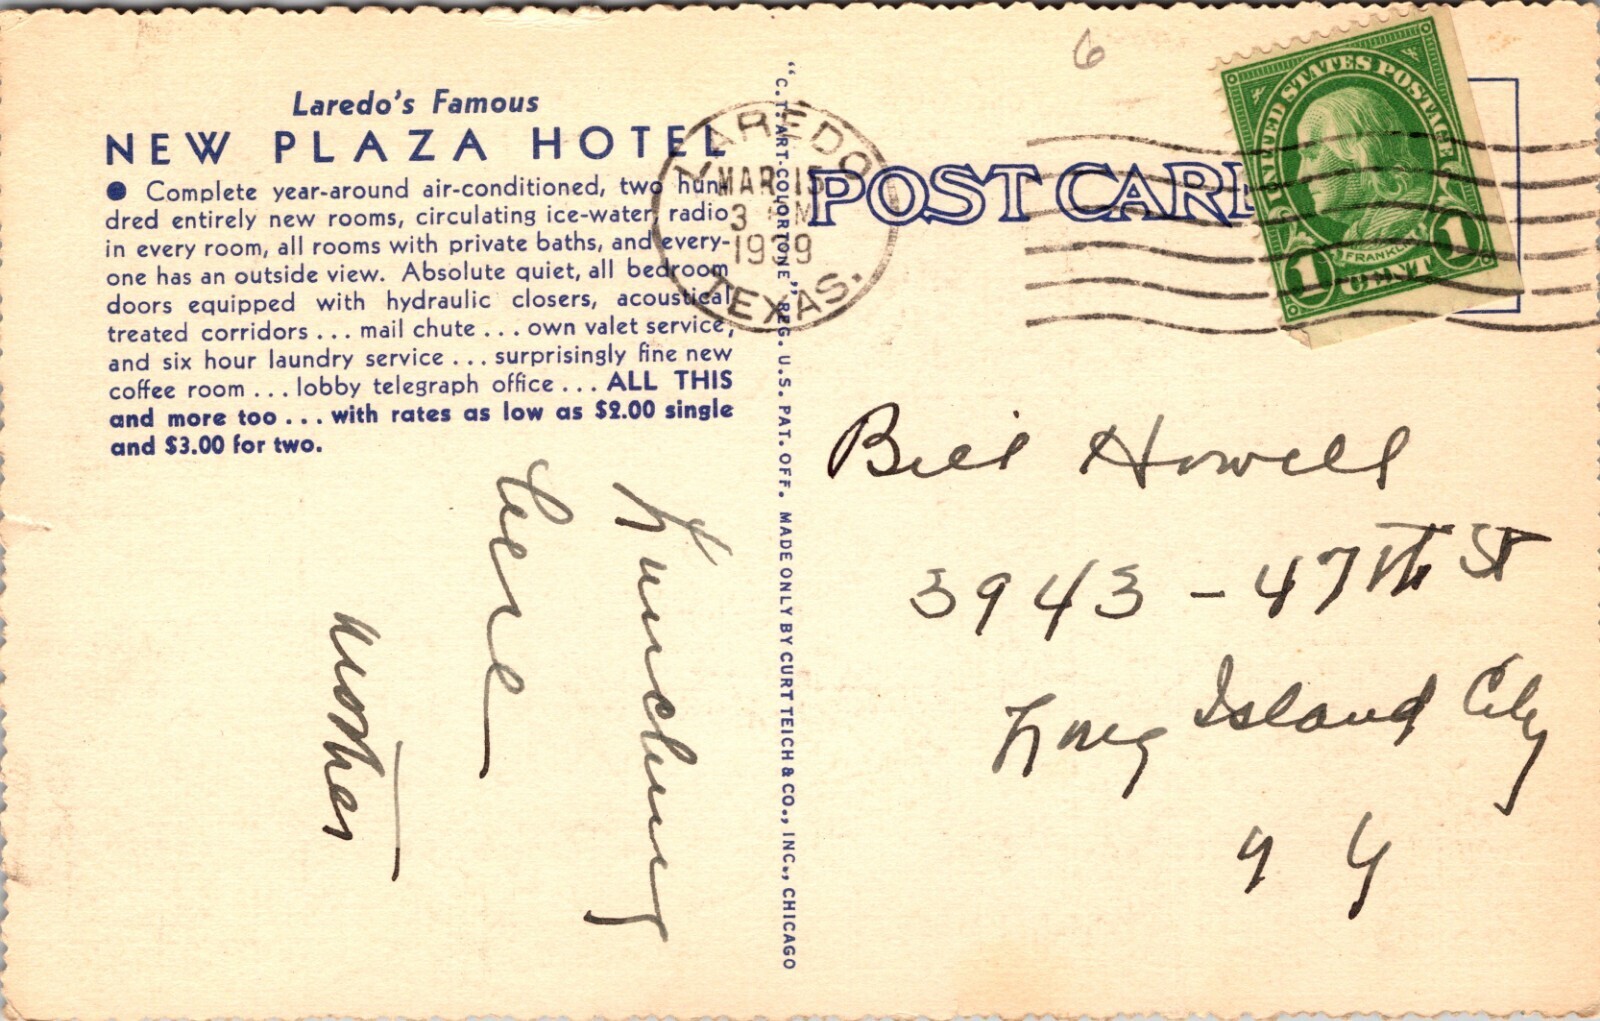 Laredo's Famous
NEW PLAZA HOTEL
● Complete year-around air-conditioned, two hun-
dred entirely new rooms, circulating ice-water, radio
in every room, all rooms with private baths, and every-
one has an outside view. Absolute quiet, all bedroom
doors equipped with hydraulic closers, acoustical
treated corridors ... mail chute ... own valet service,
and six hour laundry service ... surprisingly fine new
coffee room ... lobby telegraph office ... ALL THIS
and more too ... with rates as low as $2.00 single
and $3.00 for two.
Here
Mother
"C.T. ART-COLORTONE" REG. U.S. PAT. OFF. MADE ONLY BY CURT TEICH & CO., INC., CHICAGO
LAREDO
MAR 15
3 PM
1939
TEXAS.
6
POST CARD
UNITED STATES POSTAGE
FRANKLIN
1 CENT 1
Bill Howell
3943 - 47TH ST
Long Island City
N Y